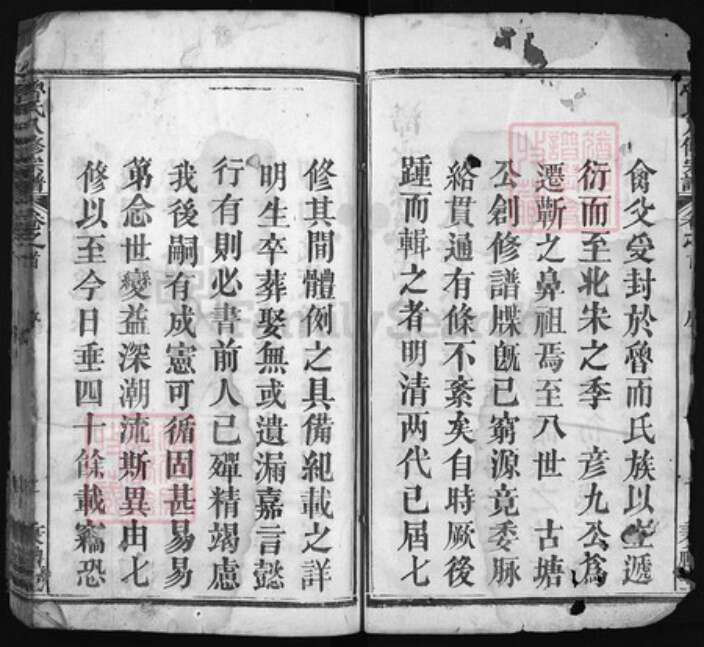 禽父受封於魯而氏族以
遞衍而至北宋之季 彥九公為
遷蘄之鼻祖焉至八世 古塘
公創修譜牒既已窮源竟委脈
絡貫通有條不紊矣自時厥後
踵而輯之者明清两代已屆七
修其間體例之具備紀載之詳
明生卒葬娶無或遺漏嘉言懿
行有則必書前人已殫精竭慮
我後嗣有成憲可循固甚易易
第念世變益深潮流斯異由七
修以至今日垂四十餘載竊恐
氏八修宗譜 卷之首 序